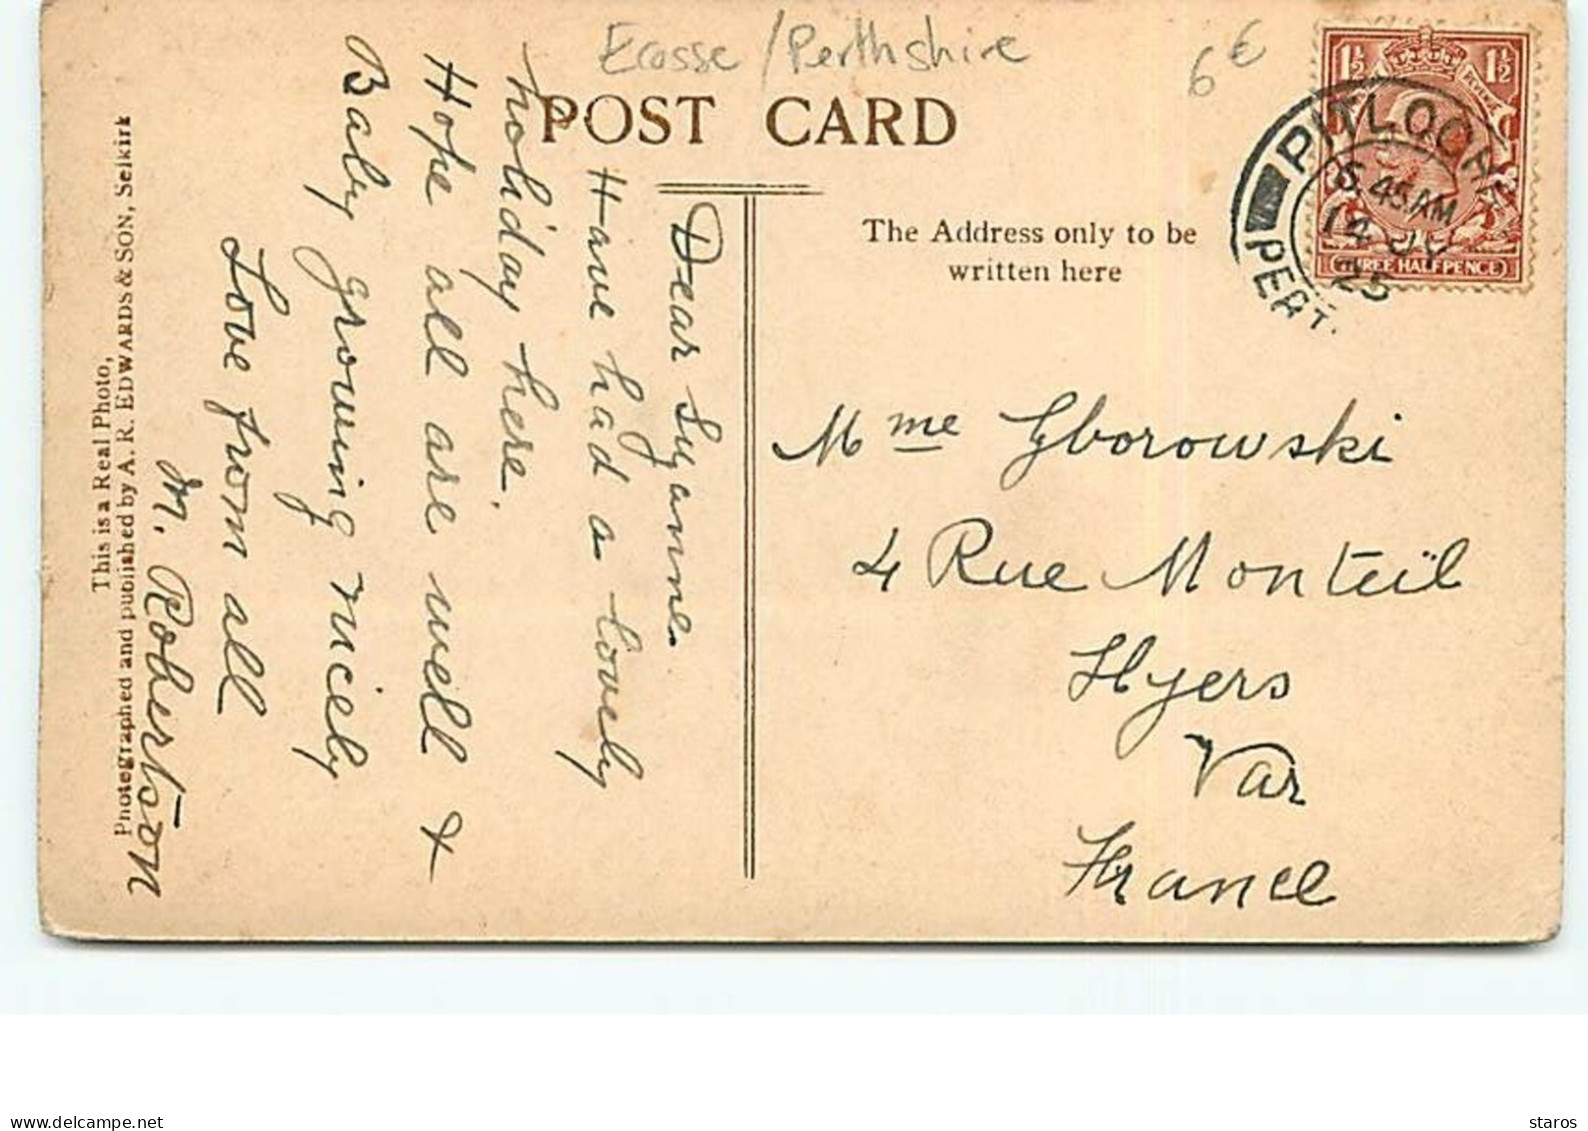 Ecosse / Perthshire
6€
POST CARD
The Address only to be
written here
1½ 1½
REVENUE
THREE HALFPENCE
PITLOCHR
6.45 AM
14 JY
25
PERT.
Dear Suzanne.
Have had a lovely
holiday here.
Hope all are well &
Baby growing nicely
Love from all
M. Robertson
This is a Real Photo,
Photographed and published by A. R. EDWARDS & SON, Selkirk
Mme Zborowski
4 Rue Monteïl
Hyers
Var
France
delcampe.net
staros